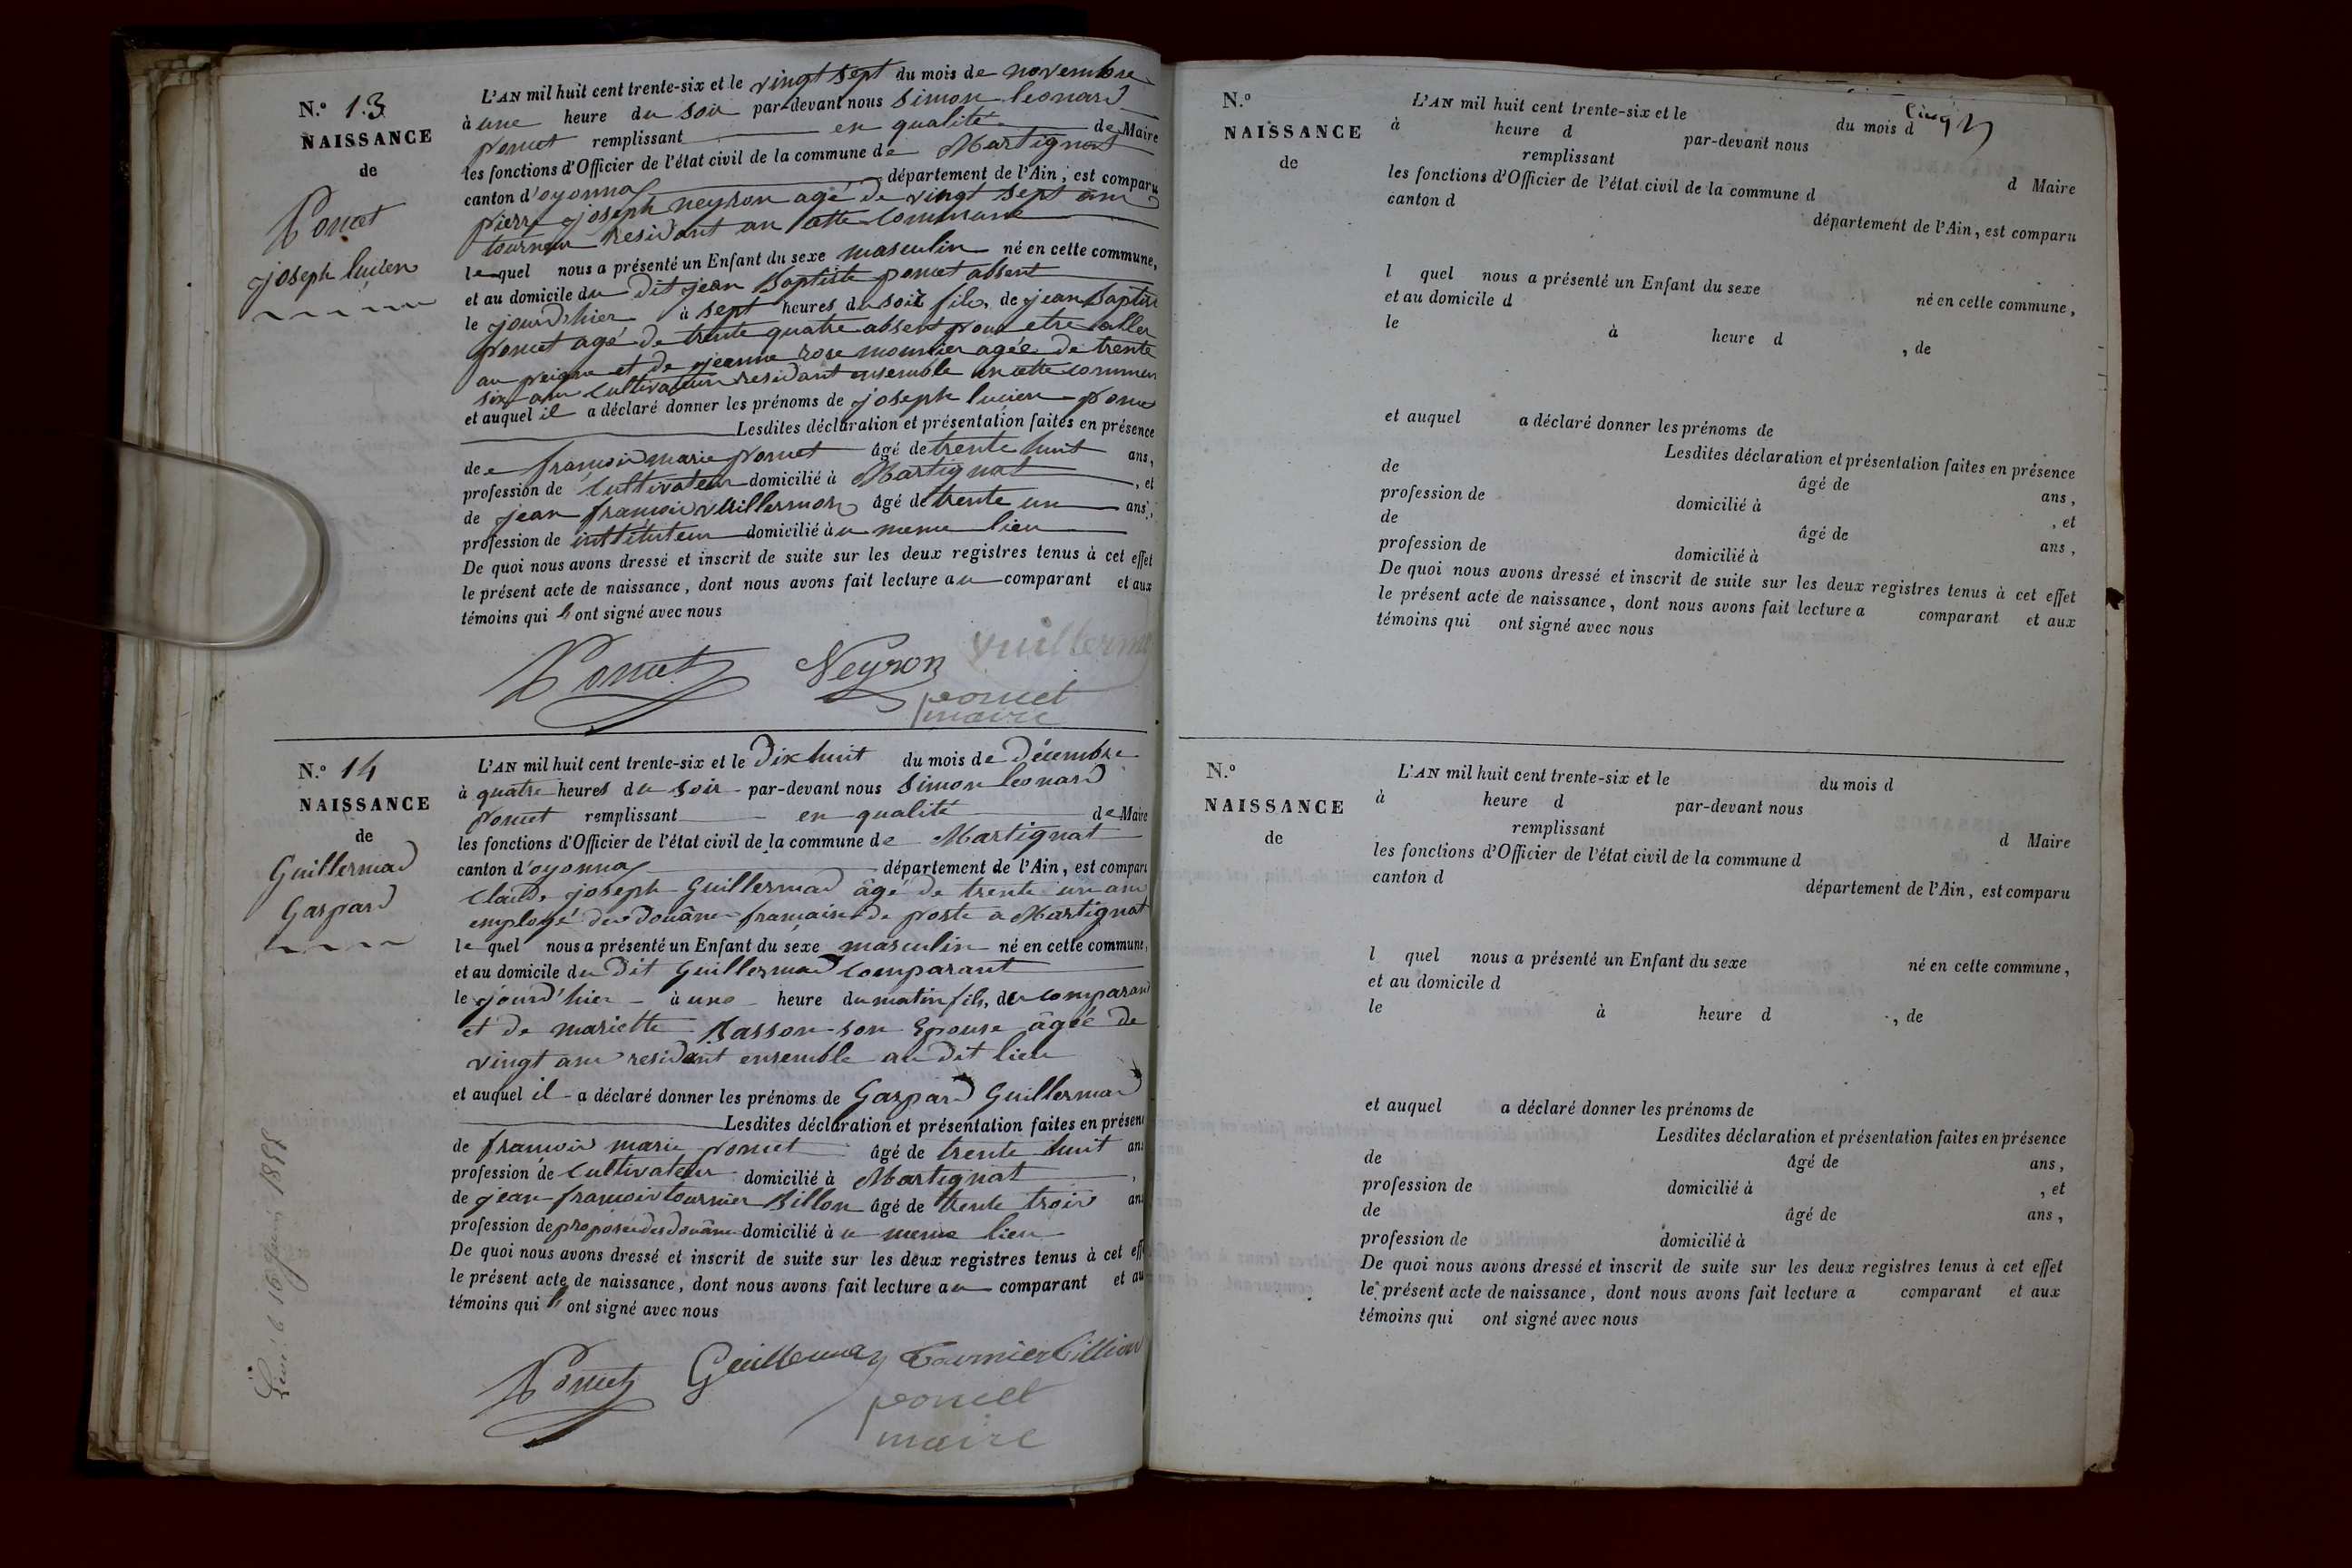 N.º 13
NAISSANCE
de
Poncet
joseph lucien
L'AN mil huit cent trente-six et le vingt sept du mois de novembre
à une heure du soir par-devant nous simon leonard
poncet remplissant en qualité de Maire
les fonctions d'Officier de l'état civil de la commune de Martignat
canton d'oyonnax département de l'Ain, est comparu
pierre joseph neyron agé de vingt sept ans
tourneur residant en cette commune
lequel nous a présenté un Enfant du sexe masculin né en cette commune,
et au domicile du dit jean Baptiste poncet absent
le jourd'hier à sept heures du soir fils, de jean Baptiste
poncet agé de trente quatre absent pour etre aller
au peigne et de jeanne rose mounier agée de trente
six ans cultivateurs residant ensemble en cette commune
et auquel il a déclaré donner les prénoms de joseph lucien poncet
Lesdites déclaration et présentation faites en présence
de françois marie poncet âgé de trente huit ans,
profession de cultivateur domicilié à Martignat, et
de jean françois vuillermoz âgé de trente un ans,
profession de instituteur domicilié au meme lieu
De quoi nous avons dressé et inscrit de suite sur les deux registres tenus à cet effet
le présent acte de naissance, dont nous avons fait lecture au comparant et aux
témoins qui l'ont signé avec nous
Poncet Neyron vuillermoz
poncet
maire
N.º 14
NAISSANCE
de
Guillermad
Gaspard
L'AN mil huit cent trente-six et le Dix huit du mois de Décembre
à quatre heures du soir par-devant nous simon leonard
poncet remplissant en qualité de Maire
les fonctions d'Officier de l'état civil de la commune de Martignat
canton d'oyonnax département de l'Ain, est comparu
Claude joseph Guillermad âgé de trente un ans
employé des douânes françaises de poste a Martignat
lequel nous a présenté un Enfant du sexe masculin né en cette commune,
et au domicile du dit Guillermad comparant
le jourd'hier à une heure du matin fils, du comparant
et de mariette Basson son Epouse âgée de
vingt ans residant ensemble au dit lieu
et auquel il a déclaré donner les prénoms de Gaspard Guillermad
Lesdites déclaration et présentation faites en présence
de françois marie poncet âgé de trente huit ans
profession de cultivateur domicilié à Martignat,
de jean françois tournier Billon âgé de trente trois ans
profession de préposé des douânes domicilié au meme lieu
De quoi nous avons dressé et inscrit de suite sur les deux registres tenus à cet effet
le présent acte de naissance, dont nous avons fait lecture au comparant et aux
témoins qui l'ont signé avec nous
Poncet Guillermaz Tournier billion
poncet
maire
N.º
NAISSANCE
de
L'AN mil huit cent trente-six et le du mois d
à heure d par-devant nous
remplissant d Maire
les fonctions d'Officier de l'état civil de la commune d
canton d département de l'Ain, est comparu
l quel nous a présenté un Enfant du sexe né en cette commune,
et au domicile d
le à heure d , de
et auquel a déclaré donner les prénoms de
Lesdites déclaration et présentation faites en présence
de âgé de ans,
profession de domicilié à , et
de âgé de ans,
profession de domicilié à
De quoi nous avons dressé et inscrit de suite sur les deux registres tenus à cet effet
le présent acte de naissance, dont nous avons fait lecture a comparant et aux
témoins qui ont signé avec nous
N.º
NAISSANCE
de
L'AN mil huit cent trente-six et le du mois d
à heure d par-devant nous
remplissant d Maire
les fonctions d'Officier de l'état civil de la commune d
canton d département de l'Ain, est comparu
l quel nous a présenté un Enfant du sexe né en cette commune,
et au domicile d
le à heure d , de
et auquel a déclaré donner les prénoms de
Lesdites déclaration et présentation faites en présence
de âgé de ans,
profession de domicilié à , et
de âgé de ans,
profession de domicilié à
De quoi nous avons dressé et inscrit de suite sur les deux registres tenus à cet effet
le présent acte de naissance, dont nous avons fait lecture a comparant et aux
témoins qui ont signé avec nous